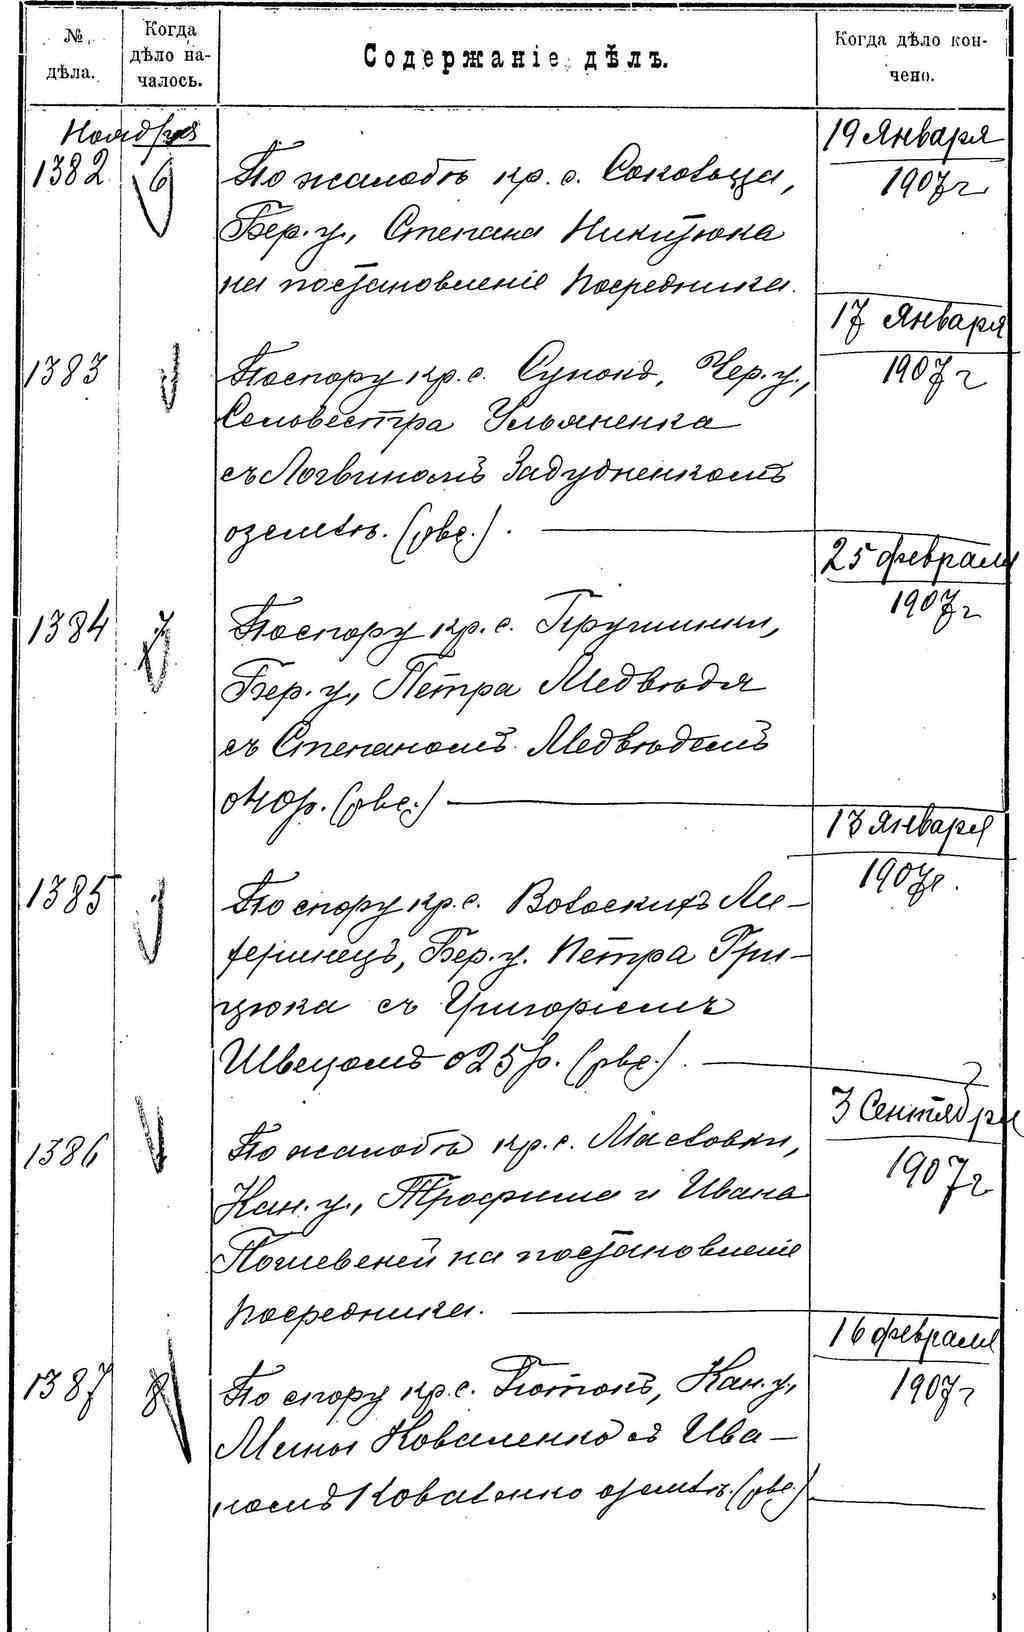 № дѣла.
Когда дѣло началось.
Содержаніе дѣлъ.
Когда дѣло кончено.
Ноября
19 Января
1382 6 По жалобѣ кр. с. Соковца, 1907 г
Бер. у., Степана Никитюка
на постановленіе посредника.
17 Января
1383 По спору кр. с. , Чер. у., 1907 г
Селовестра Ульяненка
съ Логвиномъ Задудненкомъ
о землѣ. (рве.).
25 февраля
1384 7 По спору кр. с. Пружинки, 1907 г
Бер. у., Петра Медвѣдя
съ Степаномъ Медвѣдемъ
о 40 р. (рве.)
13 Января
1385 По спору кр. с. Волоскихъ Ли- 1907 г.
, Бер. у. Петра Гри-
цюка съ Григоріемъ
Швецомъ о 25 р. (рве.).
3 Сентября
1386 По жалобѣ кр. с. Масловки, 1907 г
Кан. у., Трофима и Ивана
на постановленіе
посредника.
16 февраля
1387 8 По спору кр. с. Потокъ, Кан. у., 1907 г
Мины Коваленко съ Ива-
номъ Коваленко о землѣ. (рве.)